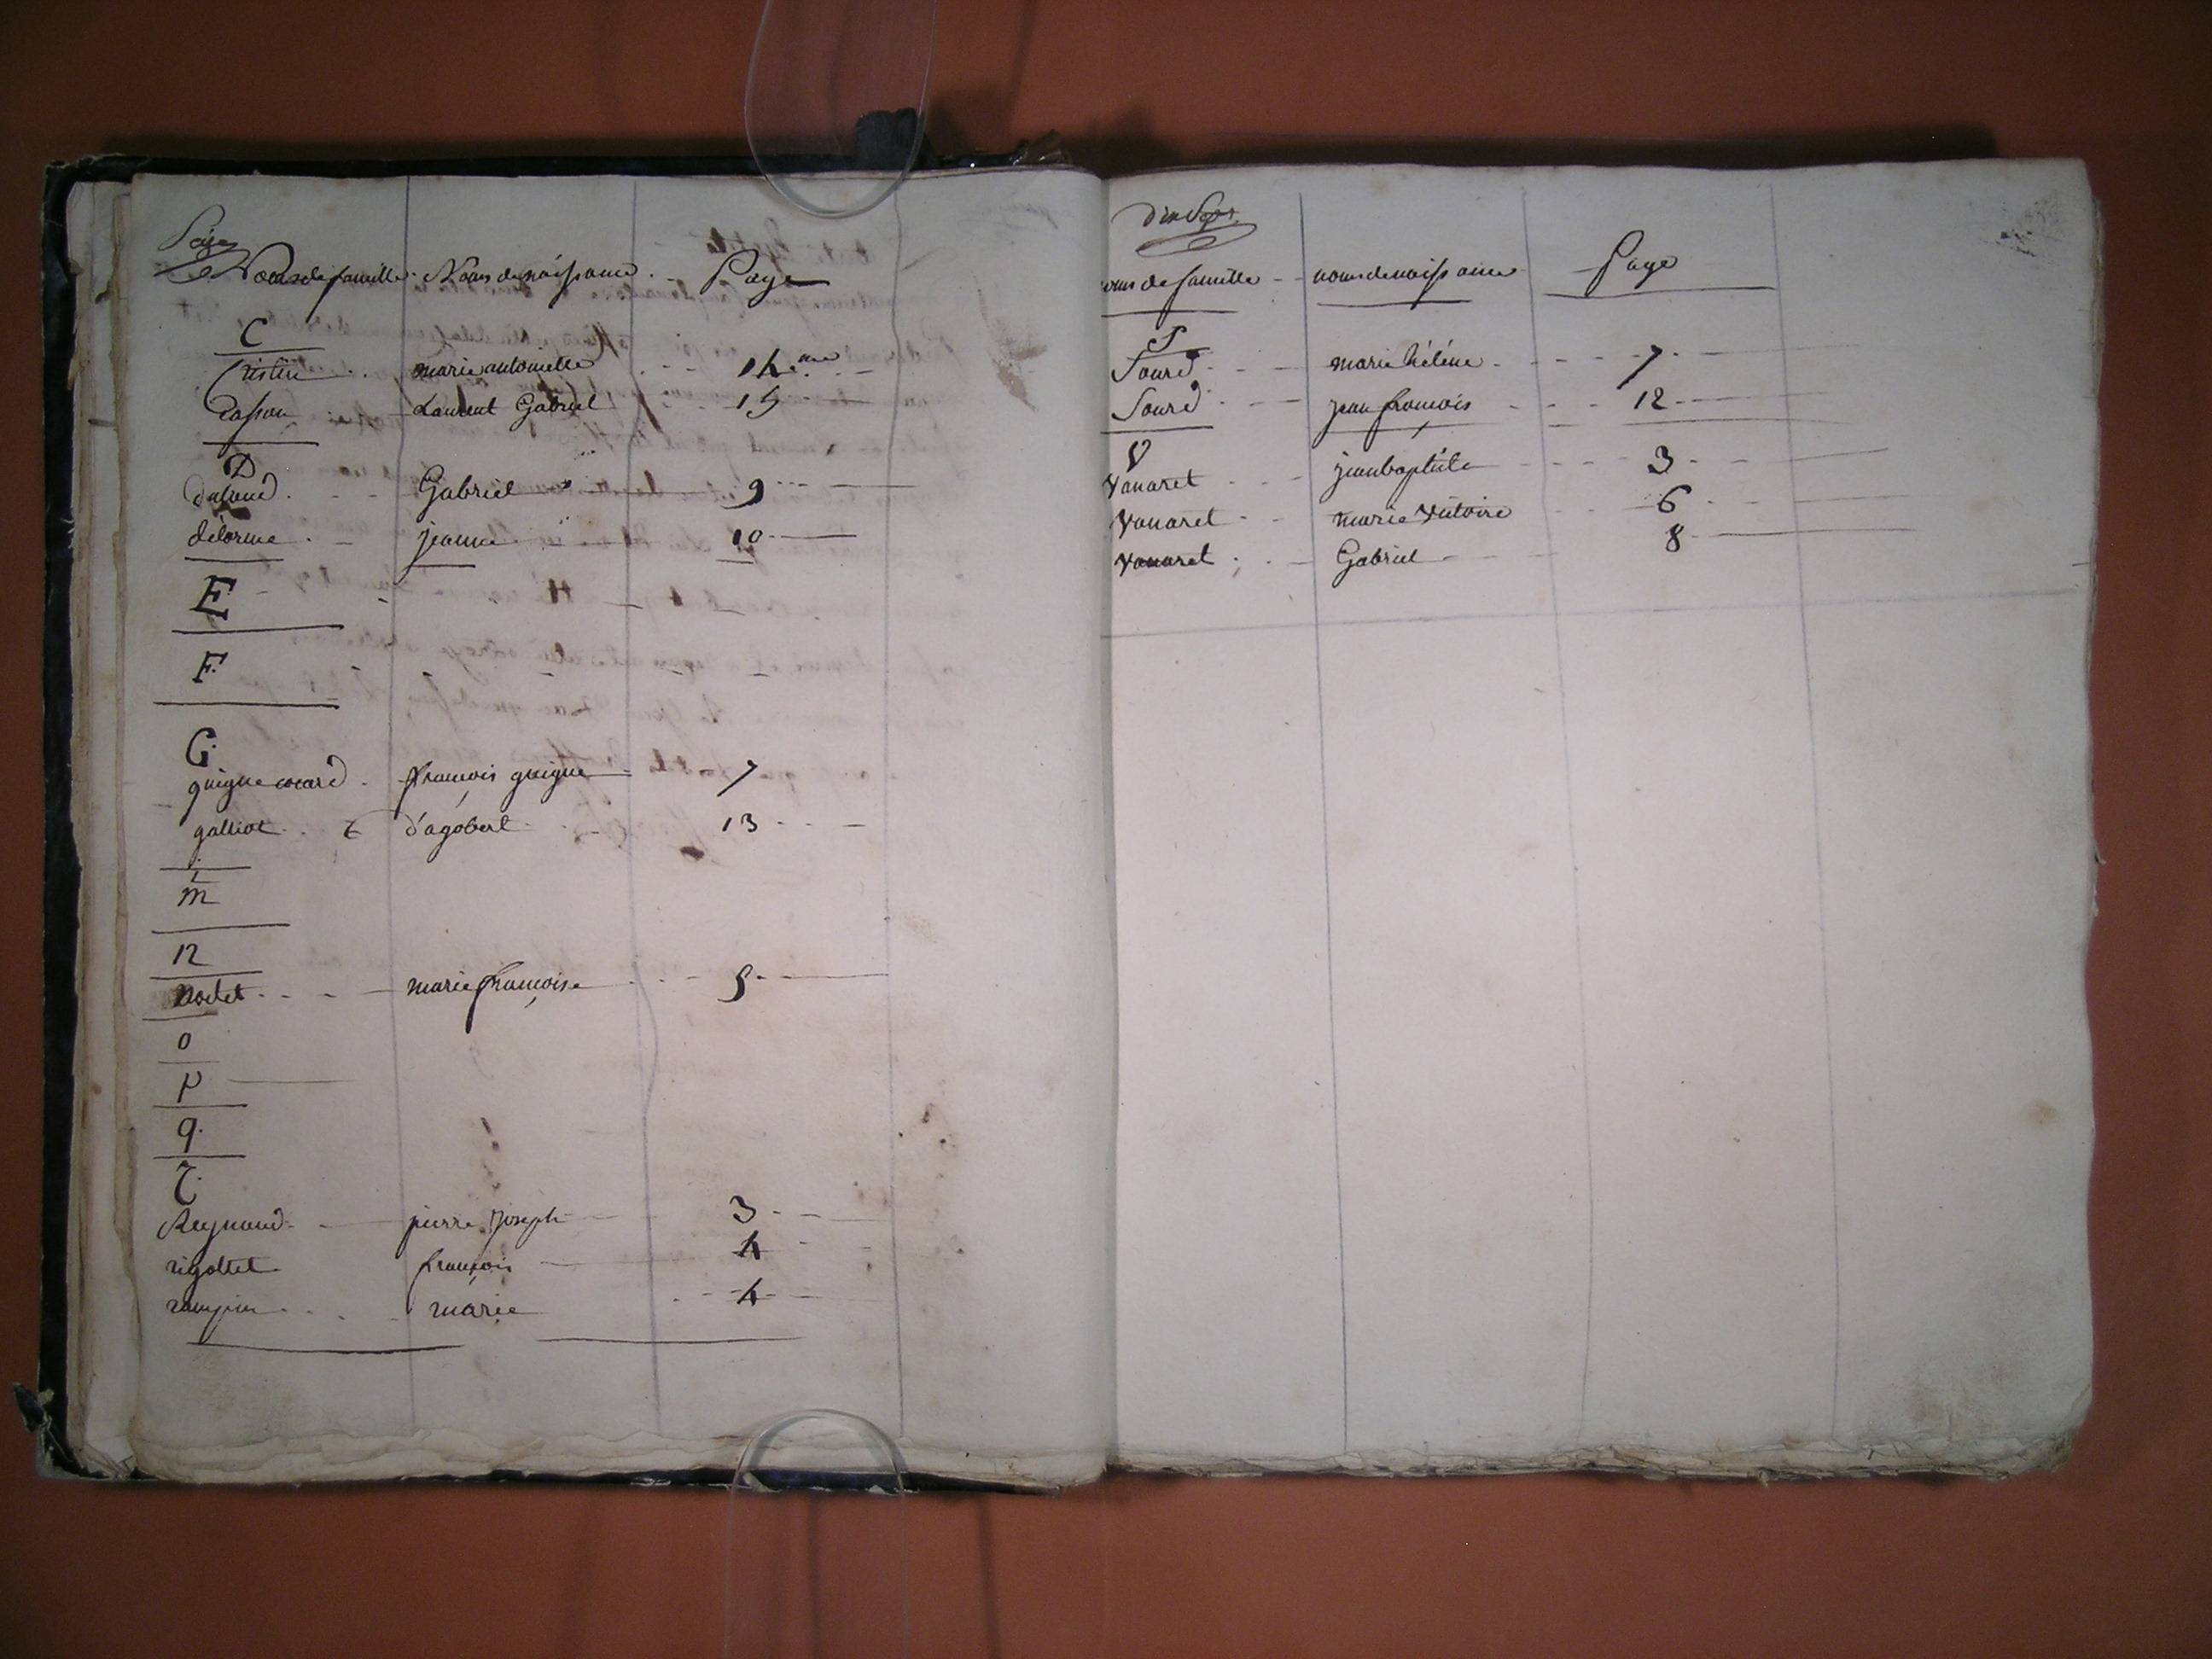 Seize
Noms de famille Noms de naissance Page
C
Cristin marie antoinette 14.eme
Casson Laurent Gabriel 15
D
Gabriel 9
délorme jeanne 10
E
F.
G.
guigne cocard françois guigne 7
galliot d'agobert 13
m
n
Nodet marie françoise 5
o
p
q.
r.
Reynaud pierre Joseph 3
rigottet françois 4
marie 4
Dix Sept
noms de famille noms de naissance Page
S
Sourd marie hélène 7
Sourd jean françois 12
V
Vanaret jean baptiste 3
Vanaret marie victoire 6
Vanaret Gabriel 8